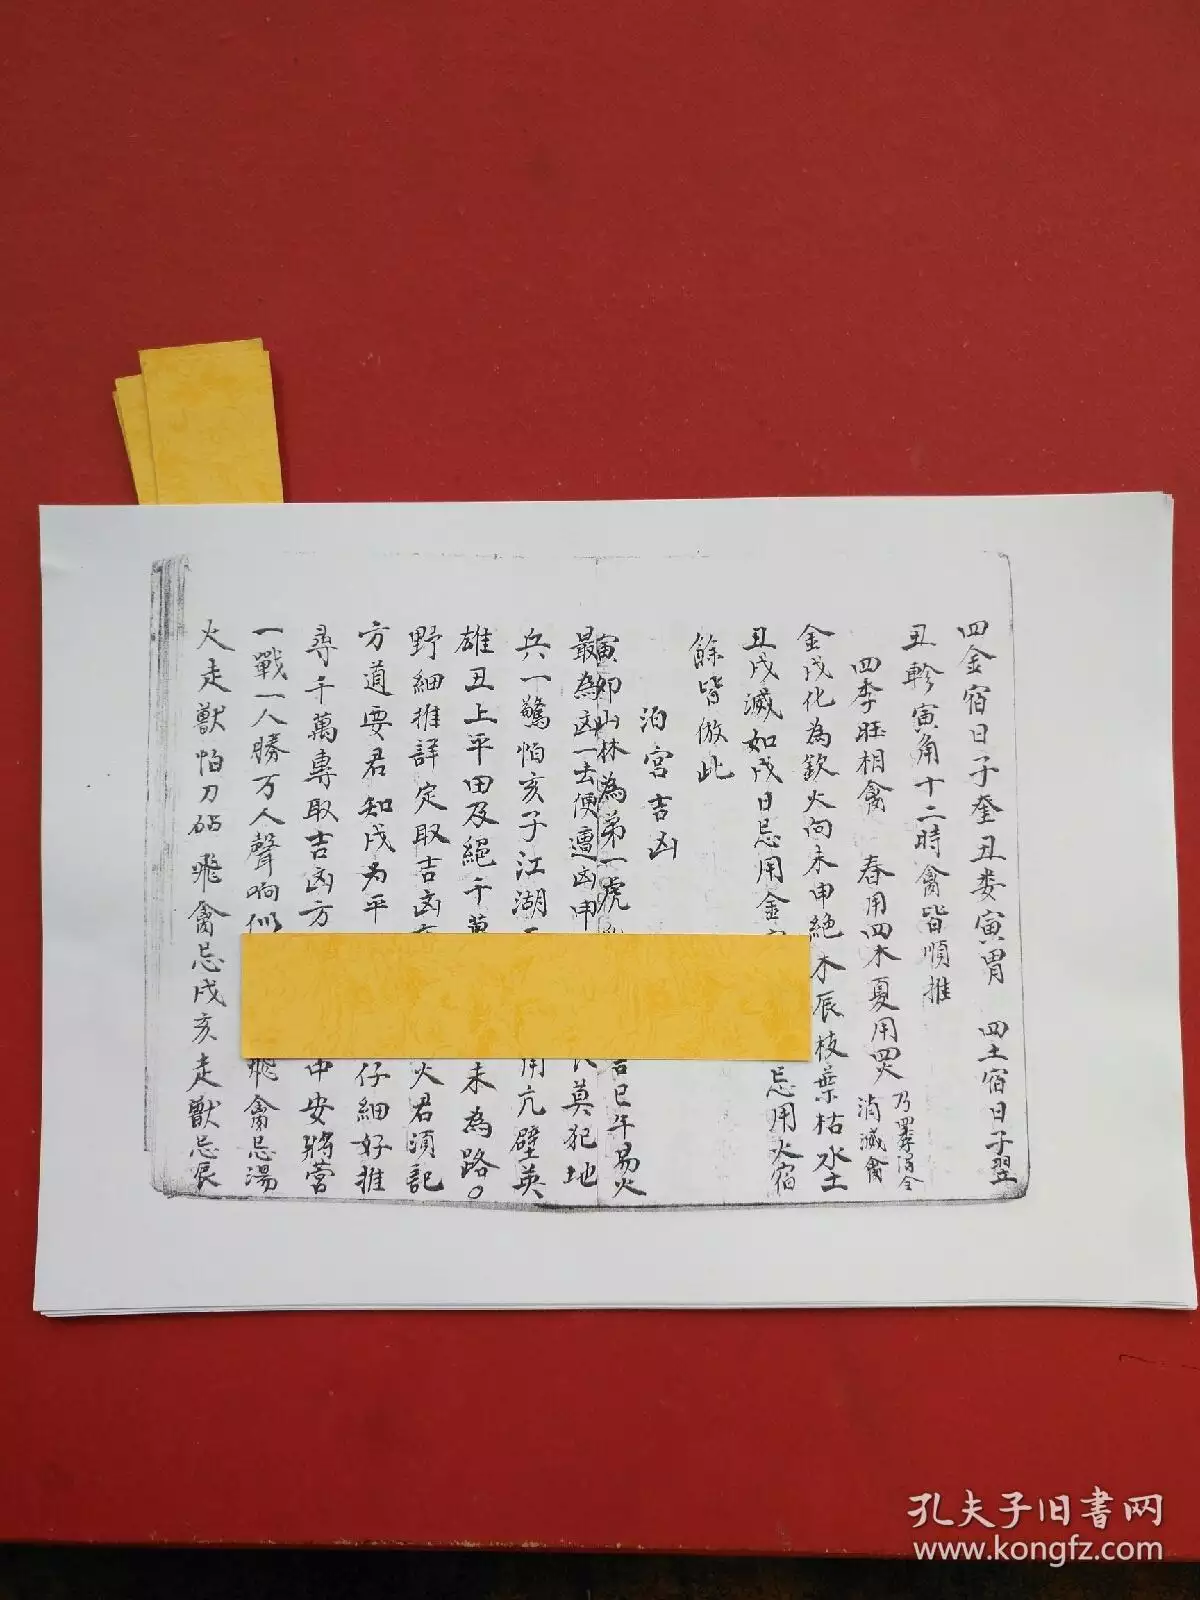 四金宿日子奎丑娄寅胃 四土宿日子翌
丑軫寅角十二時禽皆順推
四季旺相禽 春用四木夏用四火 乃四季得令 消滅禽
金戌化為欽火向未申絕木辰枝葉枯水土
丑戌滅如戌日忌用金 忌用火宿
餘皆倣此
泊宮吉凶
寅卯山林為第一虎 吉巳午易火
最為凶一去便遭凶申 莫犯地
兵一驚怕亥子江湖 用亢壁英
雄丑上平田及絕千萬 未為路。
野細推詳定取吉凶 火君須記
方道要君知戌为平 仔細好推
尋千萬專取吉凶方 中安將营
一戰一人勝万人聲响似 飛禽忌湯
火走獸怕刀砧飛禽忌戌亥走獸忌辰
孔夫子旧书网
www.kongfz.com